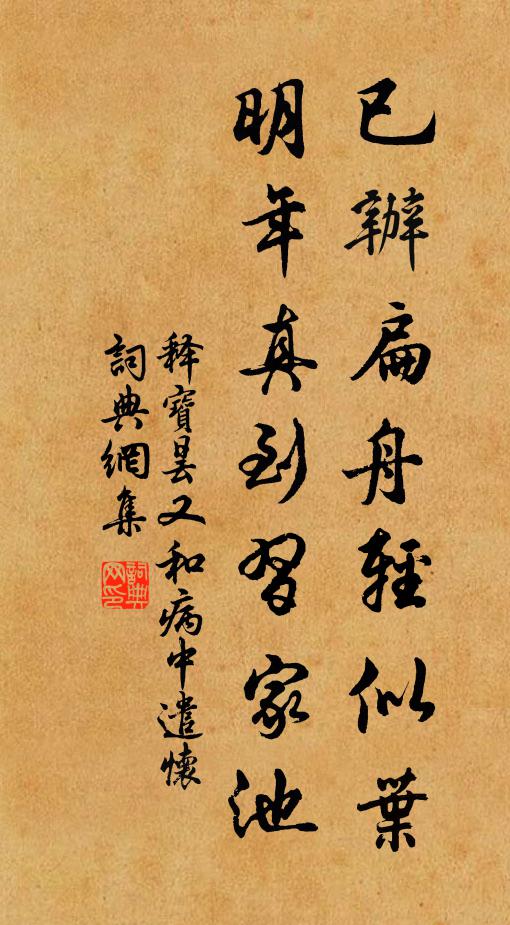 已辦扁舟輕似葉
明年真到習家池
释寶曇又和病中遣懷
詞典網集
詞典
网印